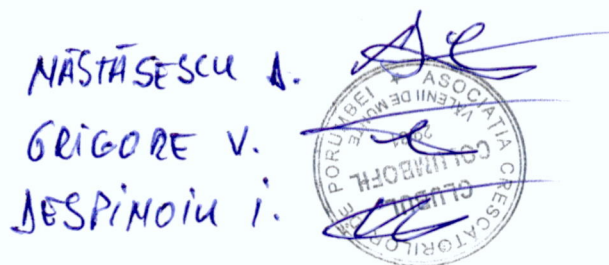 NĂSTĂSESCU A.
GRIGORE V.
DESPINOIU I.
ASOCIAȚIA CRESCATORILOR DE PORUMBEI
VĂLENII DE MUNTE
CLUBUL
COLUMBOFIL